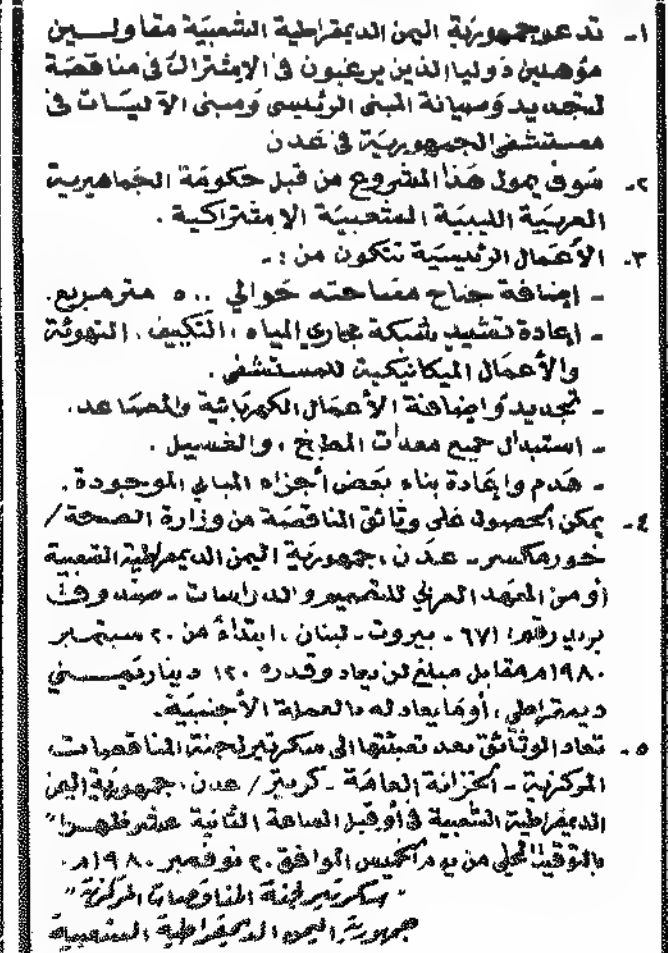 ١- تدعو جمهورية اليمن الديمقراطية الشعبية مقاولـــين
مؤهلين دوليا الذين يرغبون في الاشتراك في مناقصة
لتجديد وصيانة المبنى الرئيسي ومبنى الآنيسات في
مستشفى الجمهورية في عدن
٢- سوف يمول هذا المشروع من قبل حكومة الجماهيرية
العربية الليبية الشعبية الاشتراكية .
٣- الأعمال الرئيسية تتكون من : -
- إضافة جناح مساحته حوالي ٥٠٠ متر مربع.
- إعادة تشييد شبكة مجاري المياه ، التكييف . التهوئة
والأعمال الميكانيكية للمستشفى .
- تجديد وإضافة الأعمال الكهربائية والمصاعد.
- استبدال جميع معدات المطبخ ، والغسيل .
- هدم وإعادة بناء بعض أجزاء المباني الموجودة .
٤- يمكن الحصول على وثائق المناقصة من وزارة الصحة /
خورمكسر - عدن ، جمهورية اليمن الديمقراطية الشعبية
أو من المعهد العربي للتصميم والدراسات - صندوق
بريد رقم: ٦٧١ - بيروت - لبنان ، ابتداءً من ٢٠ سبتمبر
١٩٨٠م مقابل مبلغ لن يعاد وقدره ١٢٠ دينار يمـــني
ديمقراطي ، أو ما يعادله بالعملة الأجنبية.
٥- تعاد الوثائق بعد تعبئتها الى سكرتير لجنة المناقصات
المركزية - الخزانة العامة - كريتر / عدن ، جمهورية اليمن
الديمقراطية الشعبية في أو قبل الساعة الثانية عشر ظهــرا"
بالتوقيت المحلي من يوم الخميس الموافق ٢٠ نوفمبر ١٩٨٠م.
" سكرتير لجنة المناقصات المركزية "
جمهورية اليمن الديمقراطية الشعبية